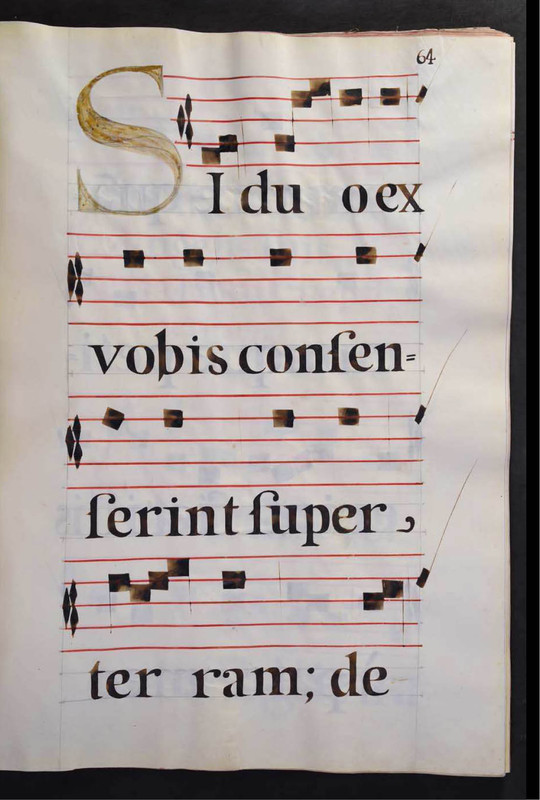 64
SI du o ex
vobis conſen=
ſerint ſuper,
ter ram; de